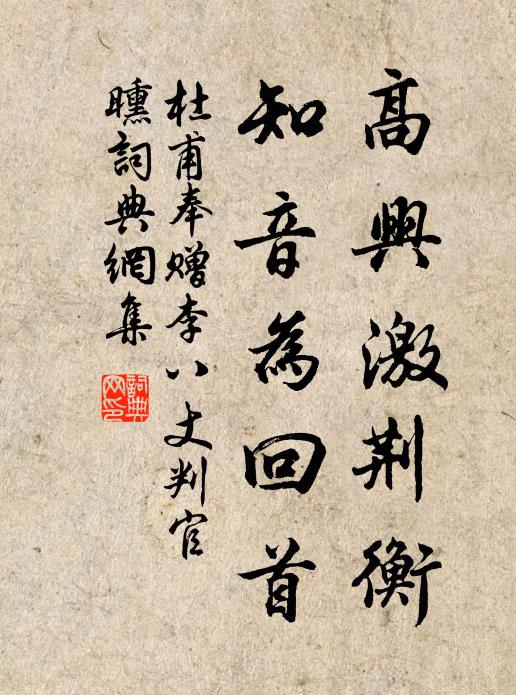 高興激荆衡
知音為回首
杜甫奉贈李八丈判官
曛詞典網集
詞典网印